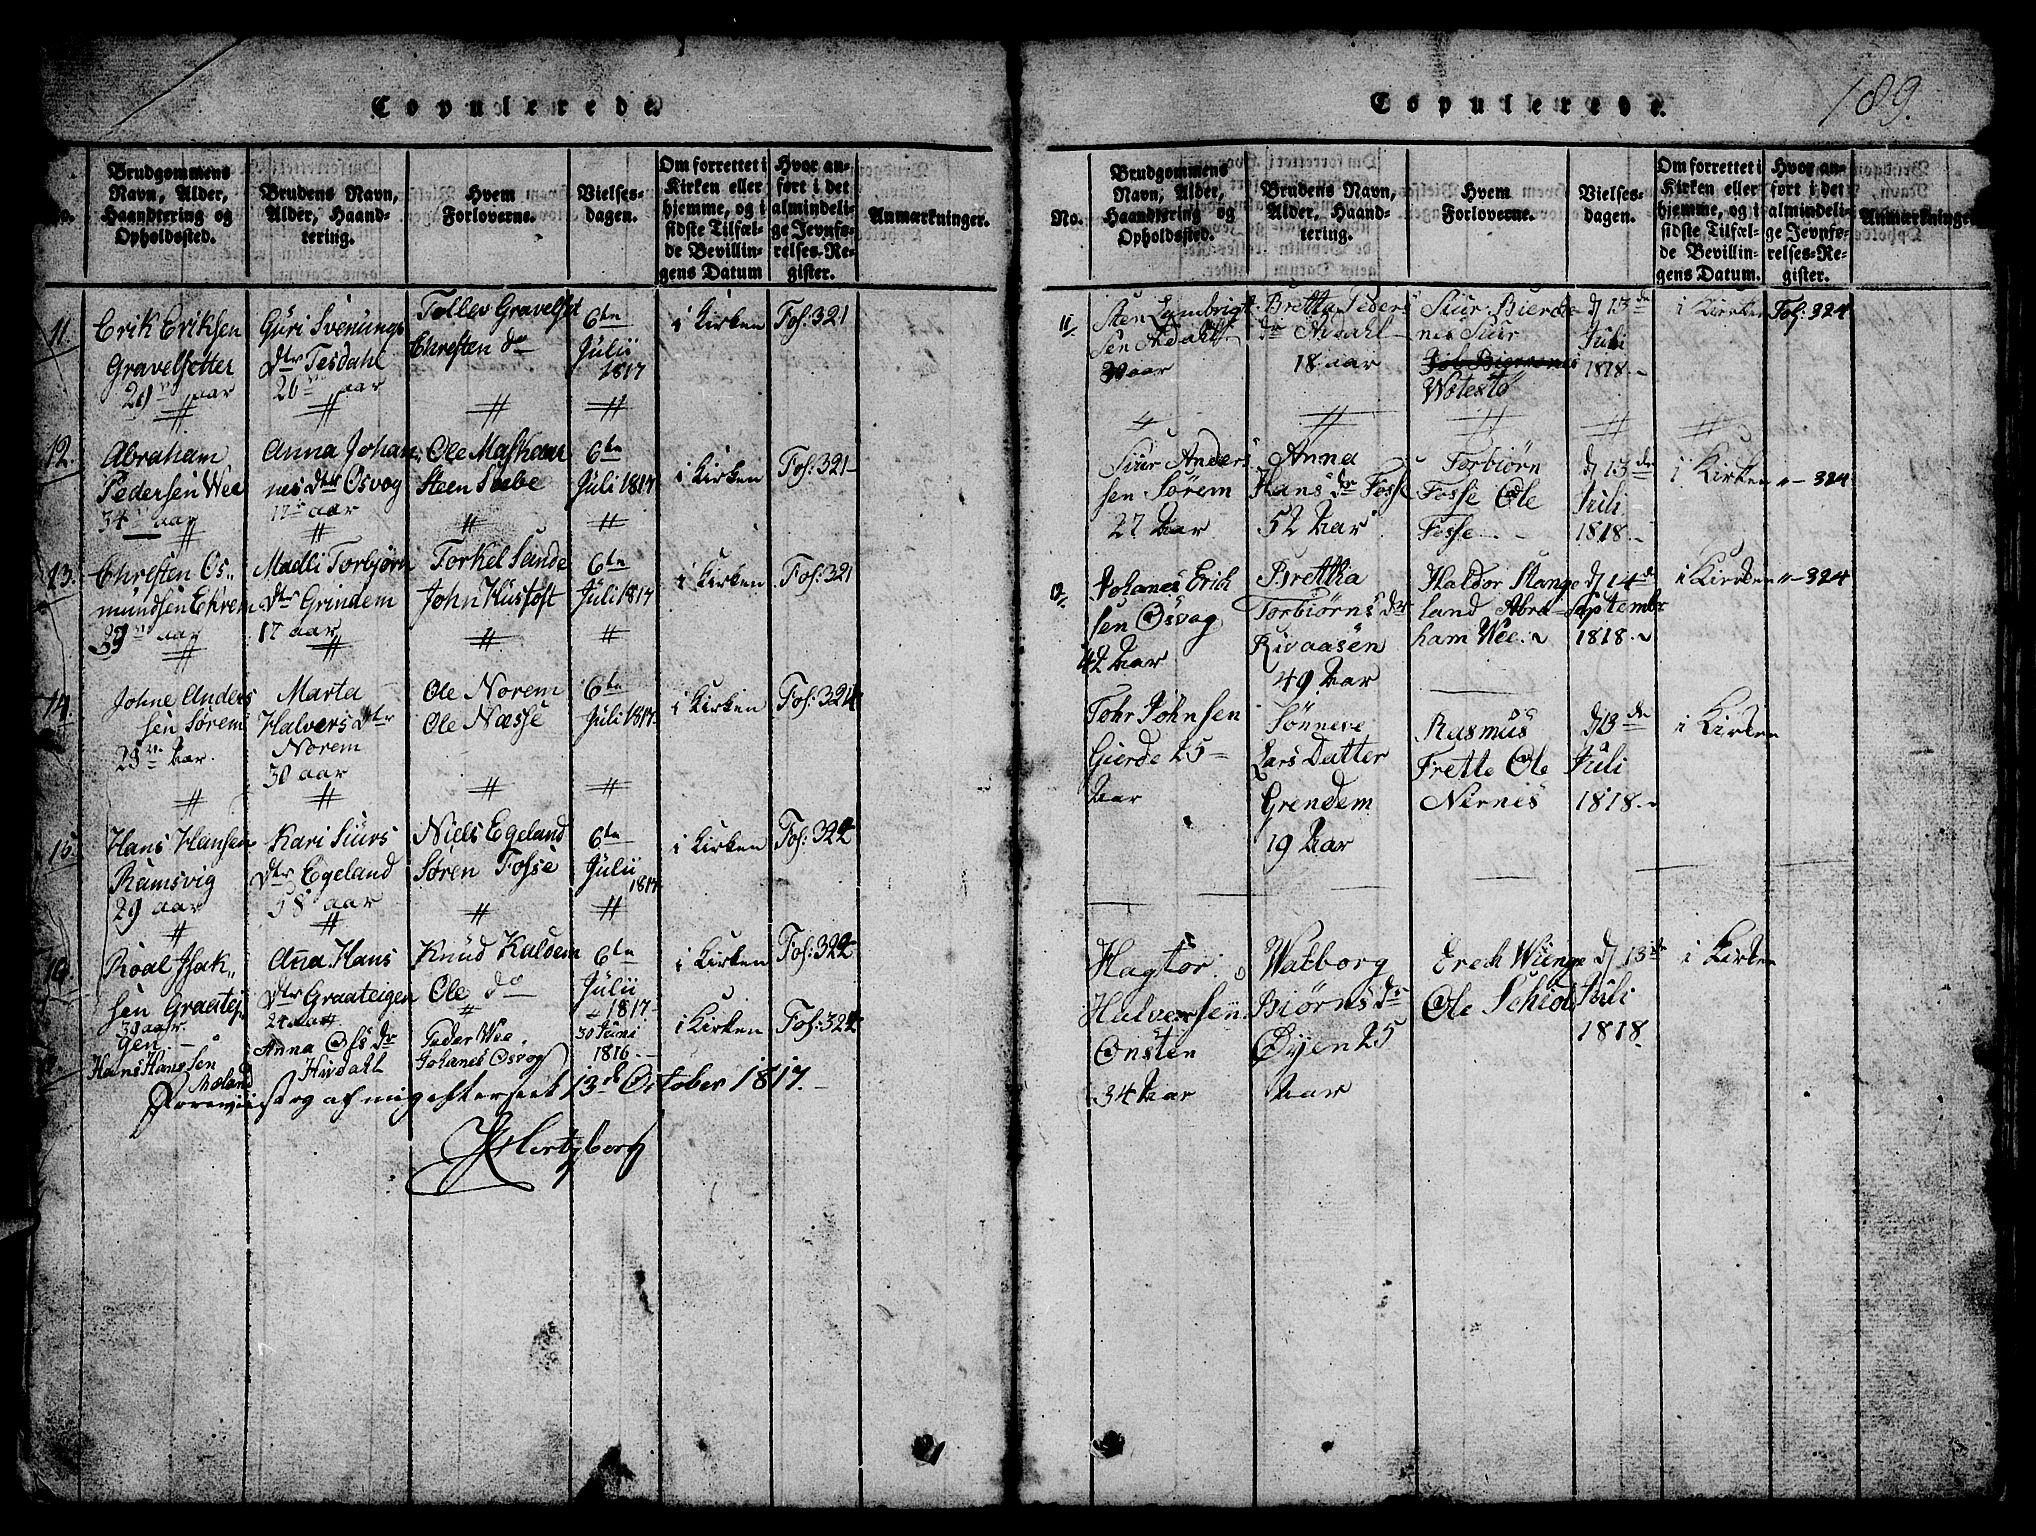 Copulerede
No.
Brudgommens Navn, Alder, Haandtering og Opholdssted.
Brudens Navn, Alder, Haandtering.
Hvem Forloverne.
Vielses-dagen.
Om forrettet i Kirken eller hjemme, og i sidste Tilfælde Bevillingens Datum
Hvor anført i det almindelige Jevnførelses-Register.
Anmærkninger.
11. Erik Eriksen Gravelsetter 29 aar
Guri Svenungs Dtr Tesdahl 26 aar
Tollev Gravelset Chresten do
6te Julii 1817
i Kirken
Fol: 321
12. Abraham Pedersen Wee 34 aar
Anna Johannes Dtr Osvog 17 aar
Ole
Steen
6te Juli 1817
i Kirken
Fol: 321
13. Chresten Osmundsen Ekrem aar
Madli Torbjørn Dtr Grindem 17 aar
Torkel Sande John Husfost
6te Juli 1817
i Kirken
Fol: 321
14. Johne Andersen Sørem 28 Aar.
Marta Halvers Dtr Norem 30 aar
Ole Norem Ole Næsse
6te Juli 1817
i Kirken
Fol: 321
15. Hans Hansen Ramsvig 29 aar
Kari Siurs Dtr Egeland 58 aar
Niels Egeland Søren Fosse
6te Julii 1817
i Kirken
Fol: 322
16. Roal Isaksen Graateigen. 30 aar
Anna Hans Dtr Graateigen 24 aar
Knud Kaldem Ole do
6te Julii 1817
i Kirken
Fol: 322
Hans Hansen Moland
Anna Ols dr
Peder Wee, Johanes Osvog
30 Juni 1816
i Kirken
Fol: 322
Foreviist og af mig efterseet 13de October 1817.
Hertzberg
Copulerede.
189.
No.
Brudgommens Navn, Alder, Haandtering og Opholdssted.
Brudens Navn, Alder, Haandtering.
Hvem Forloverne.
Vielses-dagen.
Om forrettet i Kirken eller hjemme, og i sidste Tilfælde Bevillingens Datum.
Hvor anført i det almindelige Jevnførelses-Register.
Anmærkninger
11 Sten Lambrigtsen Aadahl aar
Bretta Peders dr 18 aar
Siur Bierdenes Siur
d 13de Juli 1818
i Kirken
Fol: 324
Siur Andersen Sørem 27 Aar
Anna Hans dr Fosse 52 Aar
Torbiørn Fosse Ole Fosse
d 13de Juli 1818
i Kirken
" 324
Johanes Ericksen Osvog 42 Aar
Brettha Torbiørns dr Kivaasen 49 Aar
Haldor Stangeland Abraham Wee
d 14de September 1818
i Kirken
" 324
Tohr Johnsen Gierde 25 Aar
Sønneve Lars Datter Grendem 19 Aar
Rasmus Frette Ole Nernes
d 13de Juli 1818
i Kirken
Hagtor Halversen Onsten 34 Aar
Walborg Biørns dr Øyen 25 Aar
Erich Ole
d 13de Juli 1818
i Kirken